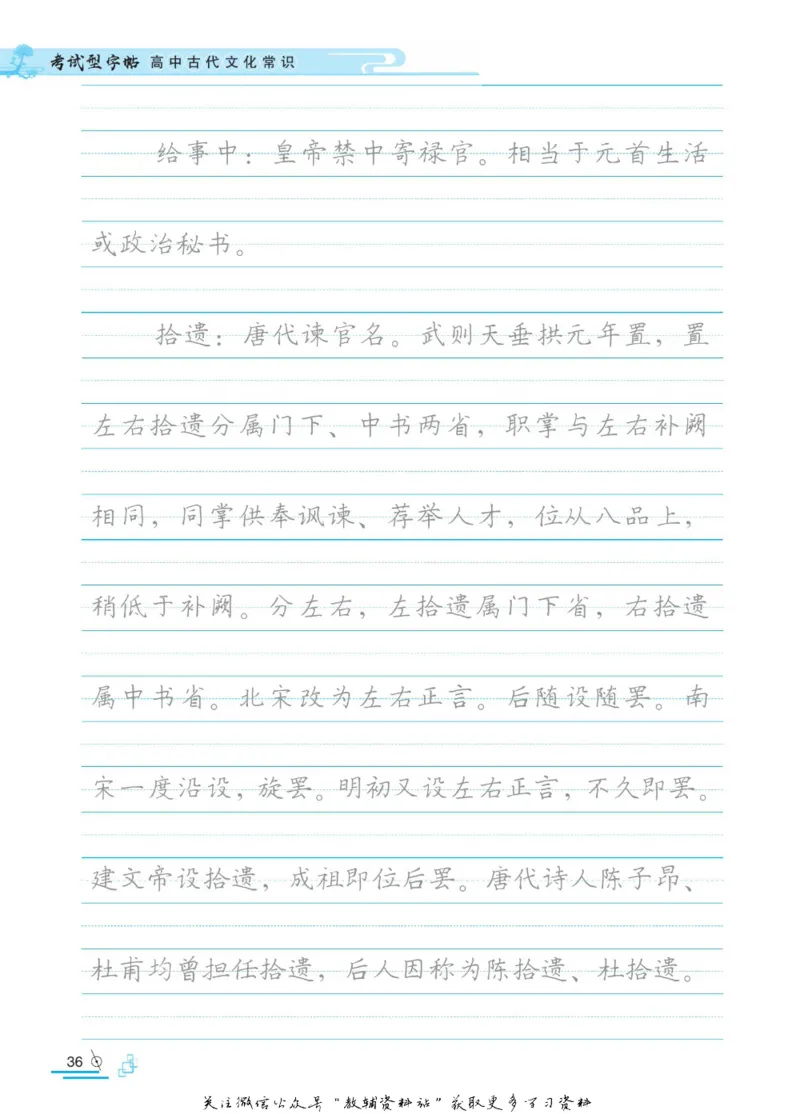 考试型字帖 高中古代文化常识
给事中：皇帝禁中寄禄官。相当于元首生活
或政治秘书。
拾遗：唐代谏官名。武则天垂拱元年置，置
左右拾遗分属门下、中书两省，职掌与左右补阙
相同，同掌供奉讽谏、荐举人才，位从八品上，
稍低于补阙。分左右，左拾遗属门下省，右拾遗
属中书省。北宋改为左右正言。后随设随罢。南
宋一度沿设，旋罢。明初又设左右正言，不久即罢。
建文帝设拾遗，成祖即位后罢。唐代诗人陈子昂、
杜甫均曾担任拾遗，后人因称为陈拾遗、杜拾遗。
36
关注微信公众号“教辅资料站”获取更多学习资料